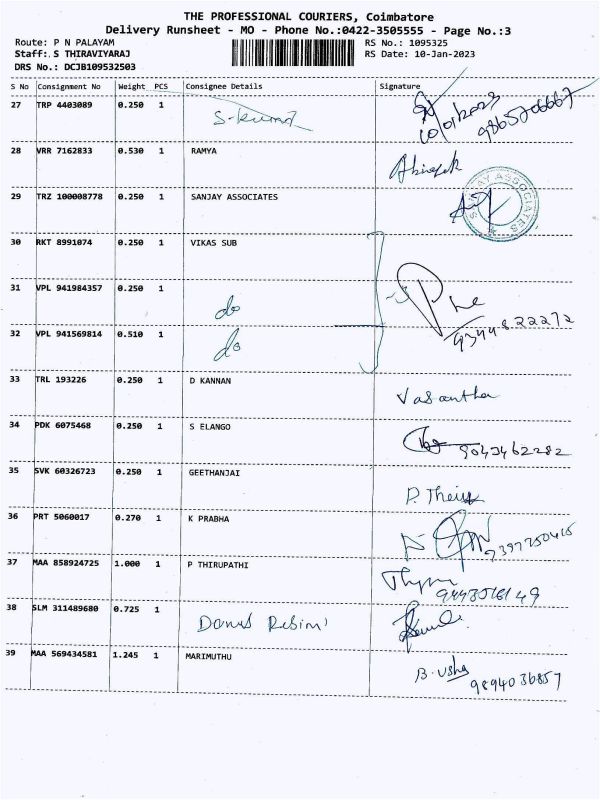 THE PROFESSIONAL COURIERS, Coimbatore
Delivery Runsheet - MO - Phone No.:0422-3505555 - Page No.:3
Route: P N PALAYAM RS No.: 1095325
Staff:.S THIRAVIYARAJ RS Date: 10-Jan-2023
DRS No.: DCJB109532503
S No Consignment No Weight PCS Consignee Details Signature
27 TRP 4403089 0.250 1 S-kumar 10/01/2023 9865706667
28 VRR 7162833 0.530 1 RAMYA
29 TRZ 100008778 0.250 1 SANJAY ASSOCIATES SANJAY ASSOCIATES
30 RKT 8991074 0.250 1 VIKAS SUB
31 VPL 941984357 0.250 1 do
32 VPL 941569814 0.510 1 do 9344822272
33 TRL 193226 0.250 1 D KANNAN Vasantha
34 PDK 6075468 0.250 1 S ELANGO 9043462282
35 SVK 60326723 0.250 1 GEETHANJAI
36 PRT 5060017 0.270 1 K PRABHA
37 MAA 858924725 1.000 1 P THIRUPATHI
38 SLM 311489680 0.725 1
39 MAA 569434581 1.245 1 MARIMUTHU B. usha 9894036857